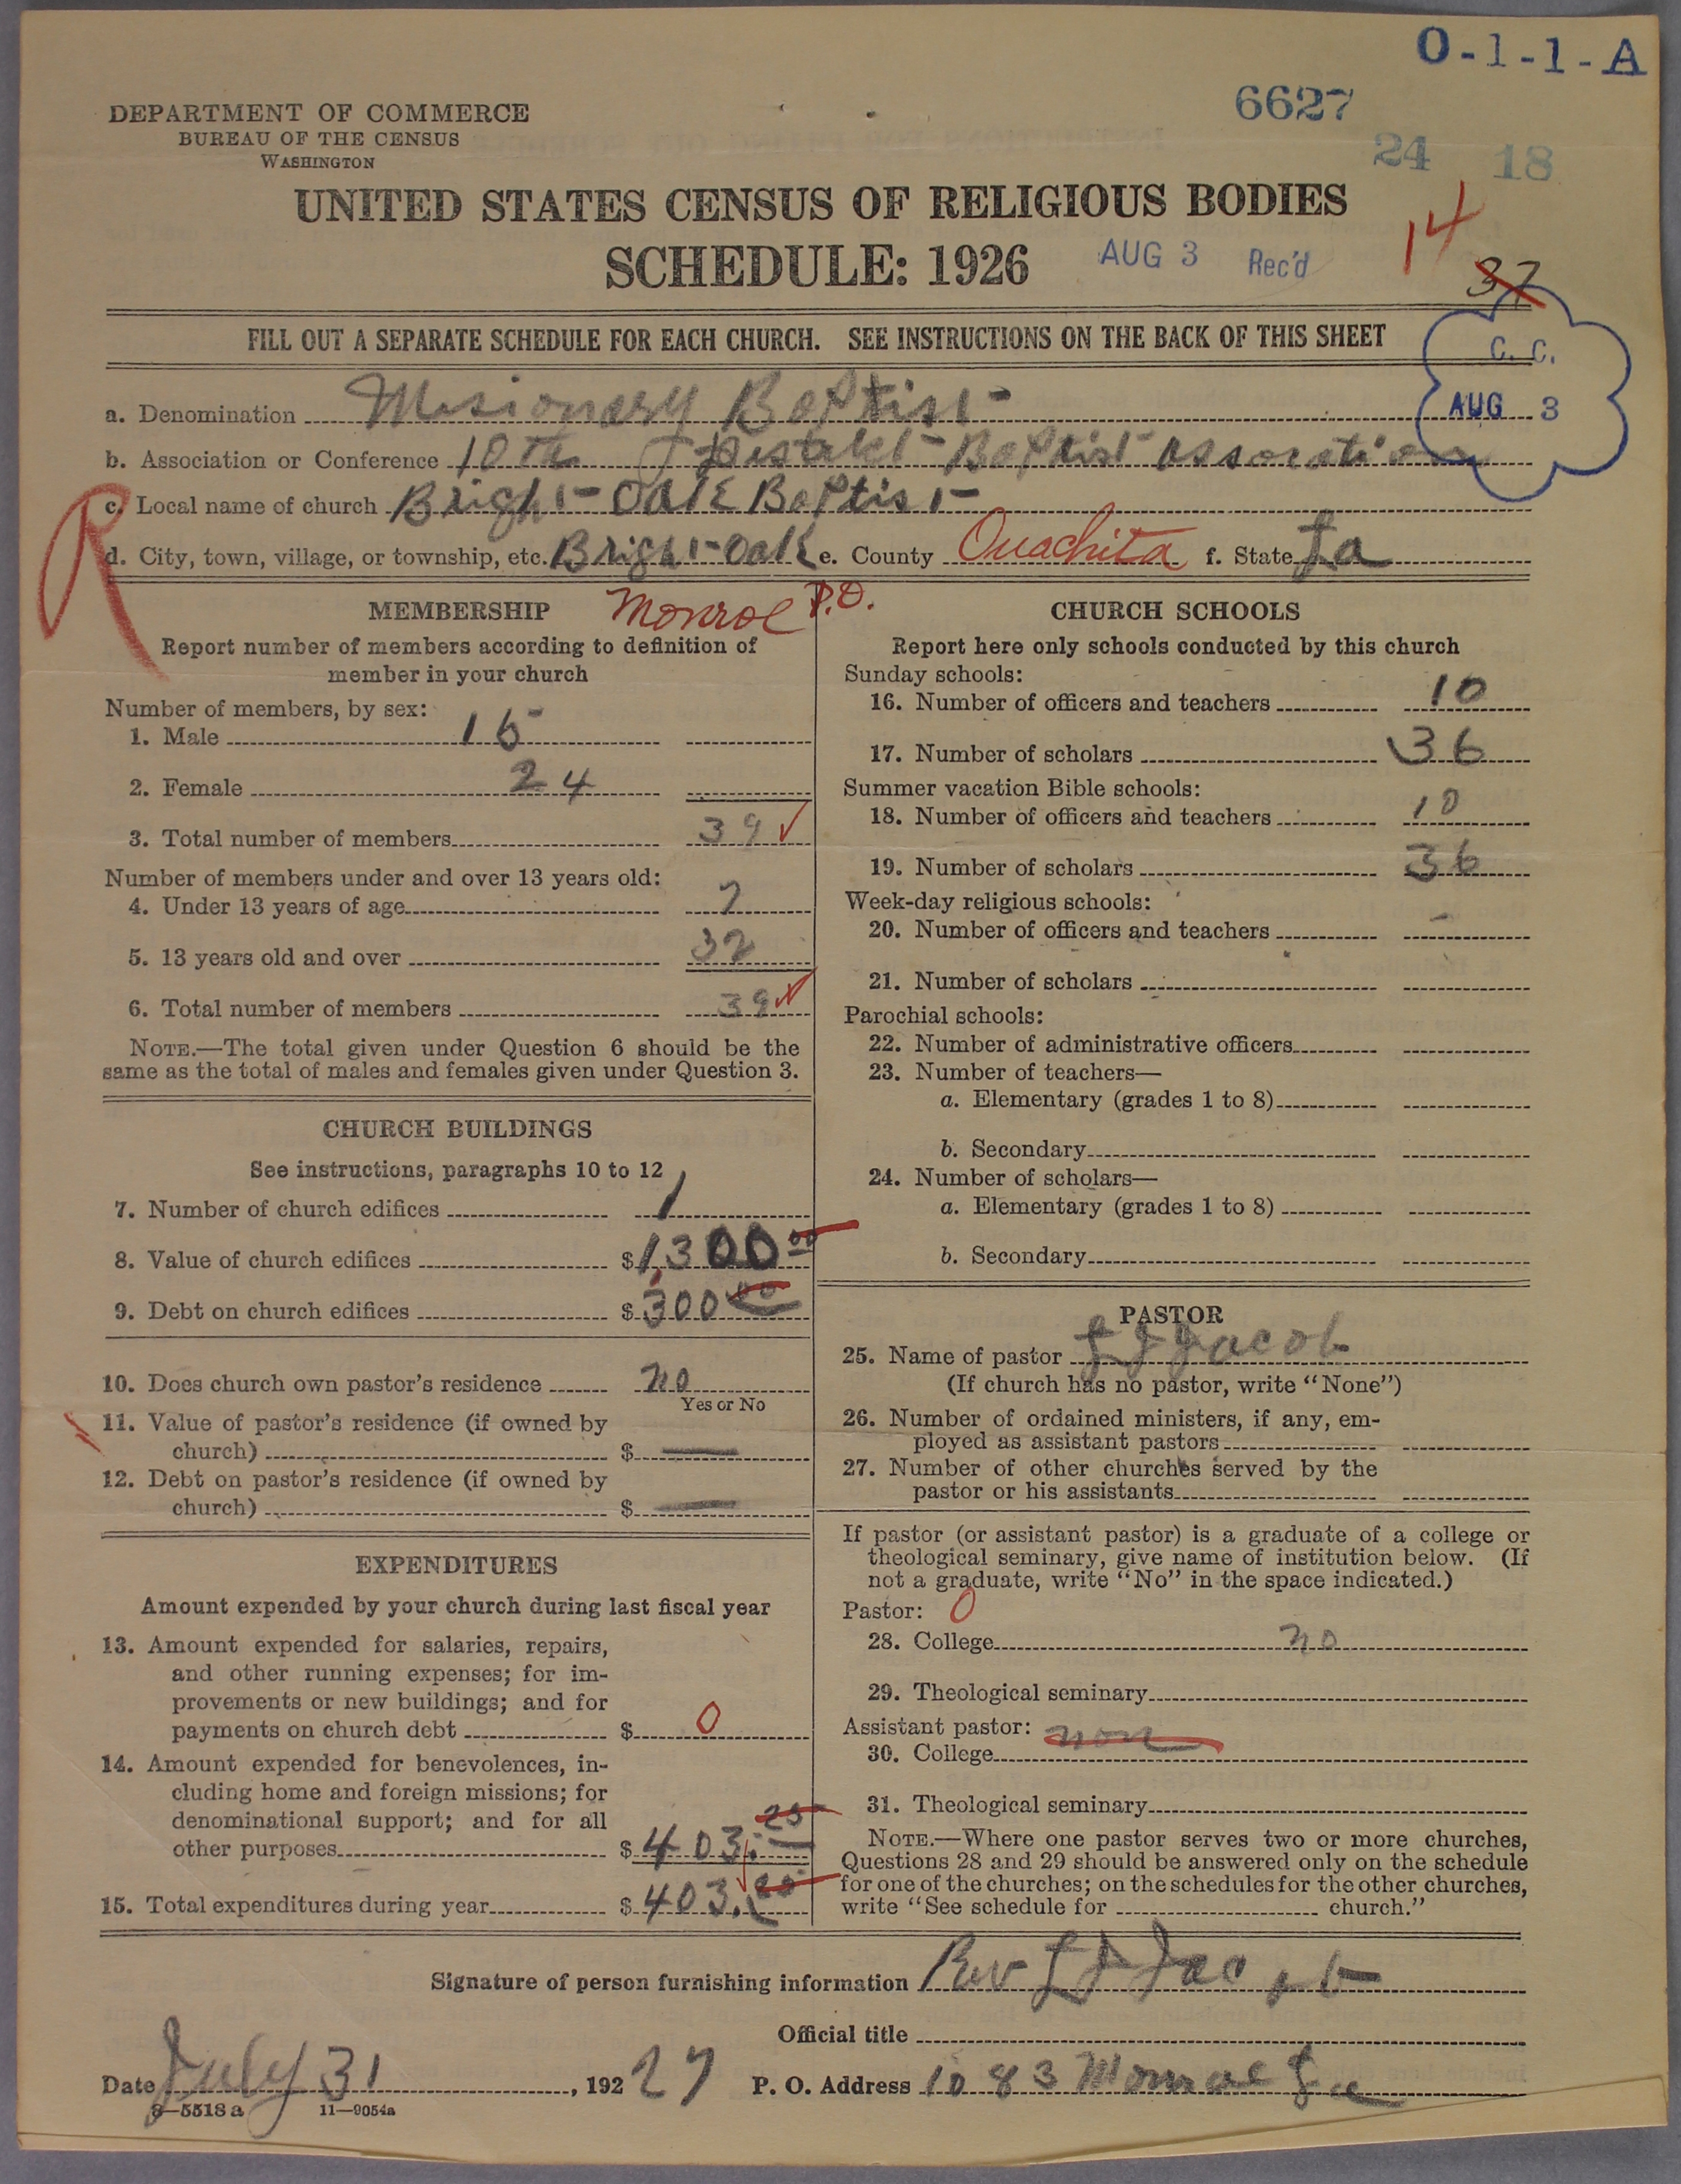 O-1-1-A
6627
DEPARTMENT OF COMMERCE
BUREAU OF THE CENSUS
WASHINGTON
24 18
UNITED STATES CENSUS OF RELIGIOUS BODIES
14
SCHEDULE: 1926 AUG 3 Rec'd
37
FILL OUT A SEPARATE SCHEDULE FOR EACH CHURCH. SEE INSTRUCTIONS ON THE BACK OF THIS SHEET
C. C.
AUG 3
a. Denomination Misionary Baptist
b. Association or Conference 10th Baptist Assocation
R
c. Local name of church Bright Oak Baptist
d. City, town, village, or township, etc. Bright Oak e. County Ouachita f. State La
Monroe P.O.
MEMBERSHIP
Report number of members according to definition of
member in your church
Number of members, by sex:
1. Male 15
2. Female 24
3. Total number of members 39
Number of members under and over 13 years old:
4. Under 13 years of age 7
5. 13 years old and over 32
6. Total number of members 39
NOTE.—The total given under Question 6 should be the
same as the total of males and females given under Question 3.
CHURCH BUILDINGS
See instructions, paragraphs 10 to 12
7. Number of church edifices 1
8. Value of church edifices $1,300 00
9. Debt on church edifices $300 00
10. Does church own pastor's residence no
Yes or No
11. Value of pastor's residence (if owned by
church) $ —
12. Debt on pastor's residence (if owned by
church) $ —
EXPENDITURES
Amount expended by your church during last fiscal year
13. Amount expended for salaries, repairs,
and other running expenses; for im-
provements or new buildings; and for
payments on church debt $ 0
14. Amount expended for benevolences, in-
cluding home and foreign missions; for
denominational support; and for all
other purposes $403. 25
15. Total expenditures during year $403.
CHURCH SCHOOLS
Report here only schools conducted by this church
Sunday schools:
16. Number of officers and teachers 10
17. Number of scholars 36
Summer vacation Bible schools:
18. Number of officers and teachers 10
19. Number of scholars 36
Week-day religious schools:
20. Number of officers and teachers -
21. Number of scholars
Parochial schools:
22. Number of administrative officers
23. Number of teachers—
a. Elementary (grades 1 to 8)
b. Secondary
24. Number of scholars—
a. Elementary (grades 1 to 8)
b. Secondary
PASTOR
25. Name of pastor L J Jacob
(If church has no pastor, write "None")
26. Number of ordained ministers, if any, em-
ployed as assistant pastors
27. Number of other churches served by the
pastor or his assistants
If pastor (or assistant pastor) is a graduate of a college or
theological seminary, give name of institution below. (If
not a graduate, write "No" in the space indicated.)
Pastor: 0
28. College no
29. Theological seminary
Assistant pastor: non
30. College
31. Theological seminary
NOTE.—Where one pastor serves two or more churches,
Questions 28 and 29 should be answered only on the schedule
for one of the churches; on the schedules for the other churches,
write "See schedule for church."
Signature of person furnishing information Rev L J Jacob
Official title
Date July 31, 1927 P. O. Address 1083 Monroe La
8—5518 a 11—9054a